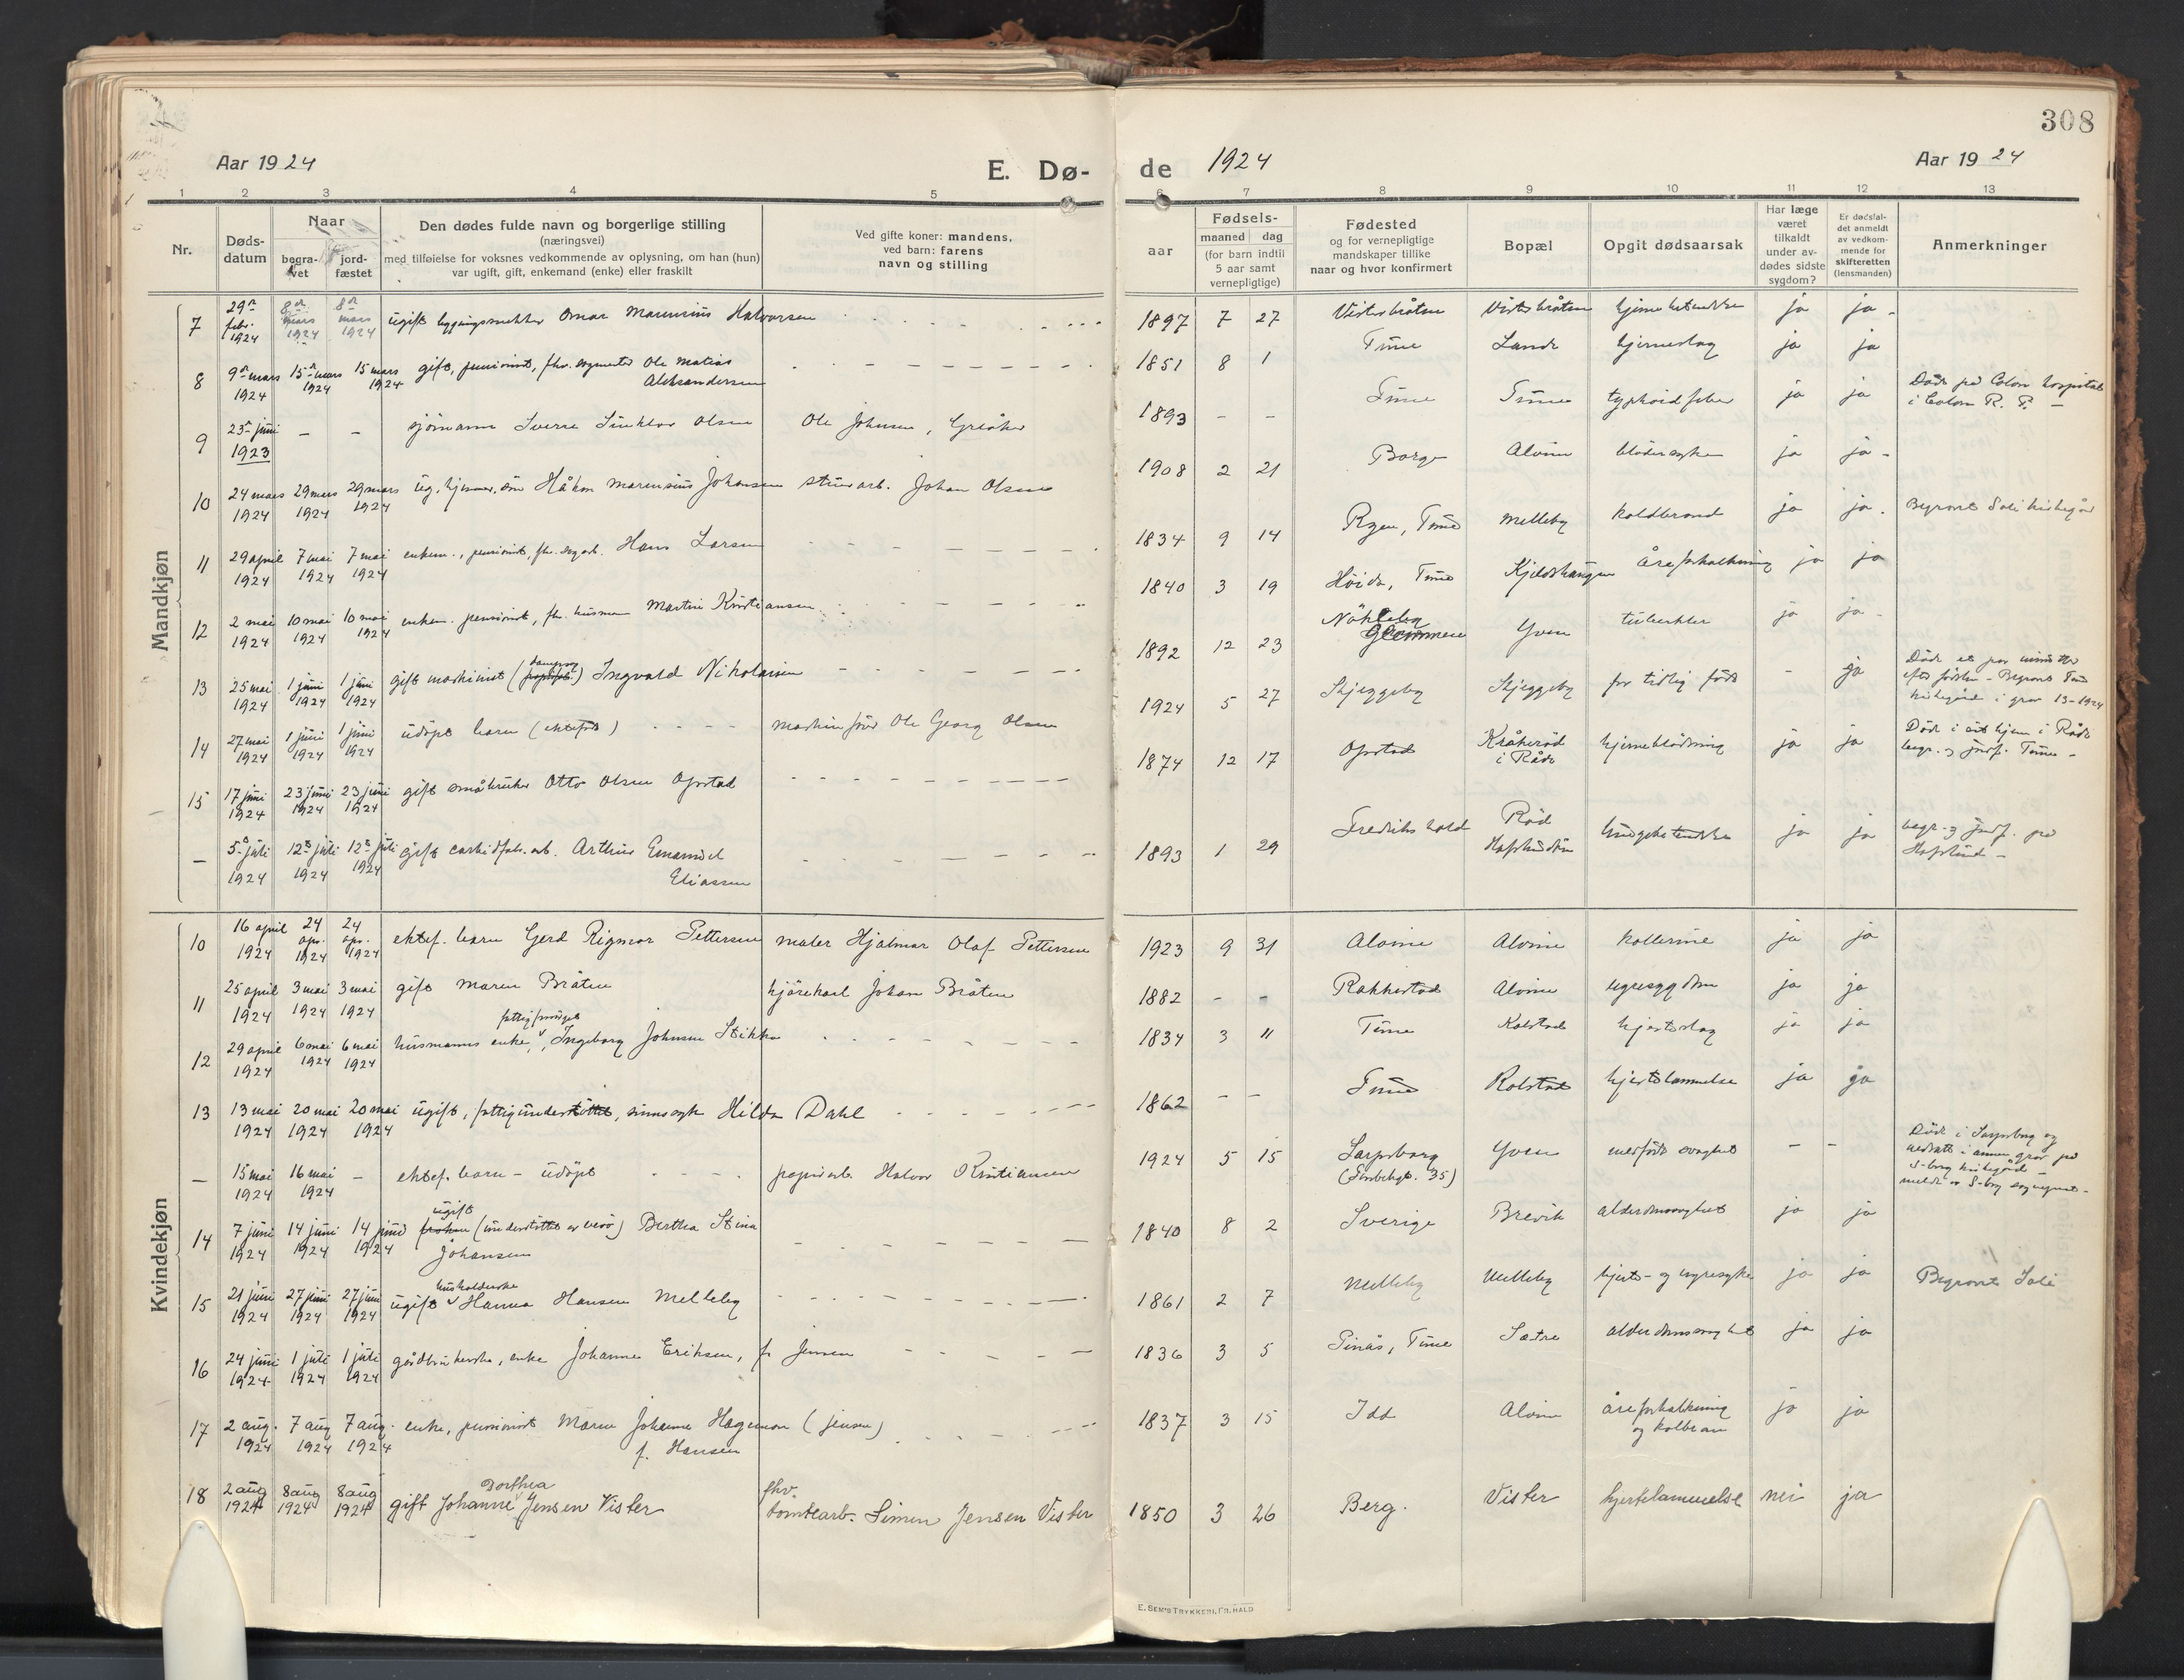 308
Aar 1924
E. Dø- de 1924
Aar 1924
1 2 3 4 5 6 7 8 9 10 11 12 13
Nr.
Døds-
datum
Naar
begra-
vet
jord-
fæstet
Den dødes fulde navn og borgerlige stilling
(næringsvei)
med tilføielse for voksnes vedkommende av oplysning, om han (hun)
var ugift, gift, enkemand (enke) eller fraskilt
Ved gifte koner: mandens,
ved barn: farens
navn og stilling
Fødsels-
aar
maaned dag
(for barn indtil
5 aar samt
vernepligtige)
Fødested
og for vernepligtige
mandskaper tillike
naar og hvor konfirmert
Bopæl
Opgit dødsaarsak
Har læge
været
tilkaldt
under av-
dødes sidste
sygdom?
Er dødsfal-
det anmeldt
av vedkom-
mende for
skifteretten
(lensmanden)
Anmerkninger
Mandkjøn
7 29de febr. 1924 8de mars 1924 8de mars 1924 ugift Omar Marensius Halvorsen 1897 7 27 Visterbråten Visterbråten ja ja
8 9de mars 1924 15de mars 1924 15 mars 1924 gift, pensionist, fhv. Ole Matias Aleksandersen 1851 8 1 Tune Lande hjerneslag ja ja
9 23de juni 1923 - - sjömann Sverre Sinklar Olsen Ole Johnsen, Greåker 1893 - - Tune Tune typhoidfeber ja ja Döde på Colon hospital i Colon R. P.
10 24 mars 1924 29 mars 1924 29 mars 1924 ug. hjemmev. sön Håkon Marensius Johansen Johan Olsen 1908 2 21 Borge Alvim blödersyke ja ja
11 29 april 1924 7 mai 1924 7 mai 1924 enkem., pensionist, fhv. Hans Larsen 1834 9 14 Tune Melleby koldbrand ja ja Begravet Soli kirkegård
12 2 mai 1924 10 mai 1924 10 mai 1924 enkem. pensionist, fh. husmann Martin Kristiansen 1840 3 19 Höida, Tune åreforkalkning ja ja
13 25 mai 1924 1 juni 1924 1 juni 1924 gift maskinist Ingvald Nikolaisen 1892 12 23 Glemmen Yven tuberkler ja ja
14 27 mai 1924 1 juni 1924 1 juni 1924 udöpt barn (ektefödt) Ole Georg Olsen 1924 5 27 Skjeggeby Skjeggeby for tidlig födt - ja Döde et par minutter efter födslen - Begravet Tune kirkegård i grav 13-1924
15 17 juni 1924 23 juni 1924 23 juni 1924 gift småbruker Otto Olsen Opstad 1874 12 17 Opstad Kråkeröd i Råde hjerneblödning ja ja Döde i sit hjem i Råde begr. og jordf. Tune
- 5te juli 1924 12te juli 1924 12te juli 1924 gift carbidfab. arb. Arthur Emanuel Eliassen 1893 1 29 Fredrikshald Röd Hafslundsöen lungebetendelse ja ja begr. og jordf. på Hafslund
Kvindekjøn
10 16 april 1924 24 apr. 1924 24 apr. 1924 ektef. barn Gerd Rigmor Pettersen maler Hjalmar Olaf Pettersen 1923 9 31 Alvim Alvim ja ja
11 25 april 1924 3 mai 1924 3 mai 1924 gift Maren Bråten kjörekarl Johan Bråten 1882 - - Rakkestad Alvim nyresygdom ja ja
12 29 april 1924 6 mai 1924 6 mai 1924 husmanns enke, Ingeborg Johnsen Stikka 1834 3 11 Tune Kolstad hjerteslag ja ja
13 13 mai 1924 20 mai 1924 20 mai 1924 ugift, fattigunderstöttet, sinnssyk Hilda Dahl 1862 - - Tune Rolstad hjertelammelse ja ja
- 15 mai 1924 16 mai 1924 - ektef. barn - udöpt papirarb. Halvor Kristiansen 1924 5 15 Sarpsborg Yven medfödt svaghet - - Döde i Sarpsborg og nedsatt i annen grav på S-borg kirkegård
14 7 juni 1924 14 juni 1924 14 juni 1924 ugift Bertha Stina Johansen 1840 8 2 Sverige Brevik alderdomssvaghet ja ja
15 21 juni 1924 27 juni 1924 27 juni 1924 ugift husholderske Hanna Hansen Melleby 1861 2 7 Melleby Melleby hjerte- og nyresyke ja ja Begravet Soli
16 24 juni 1924 1 juli 1924 1 juli 1924 gårdbrukerske, enke Johanne Eriksen, f. Jensen 1836 3 5 Pinås, Tune Sætre alderdomssvaghet ja ja
17 2 aug. 1924 7 aug 1924 7 aug. 1924 enke, pensionist Maren Johanne Hagemon (Jensen) f. Hansen 1837 3 15 Idd Alvim åreforkalkning og koldbrann ja ja
18 2 aug 1924 8 aug 1924 8 aug 1924 gift Johanne Dorthea Jensen Vister fhv. tomtearb. Simen Jensen Vister 1850 3 26 Berg. Vister hjertelammelse nei ja
E. SEM'S TRYKKERI, FR.HALD